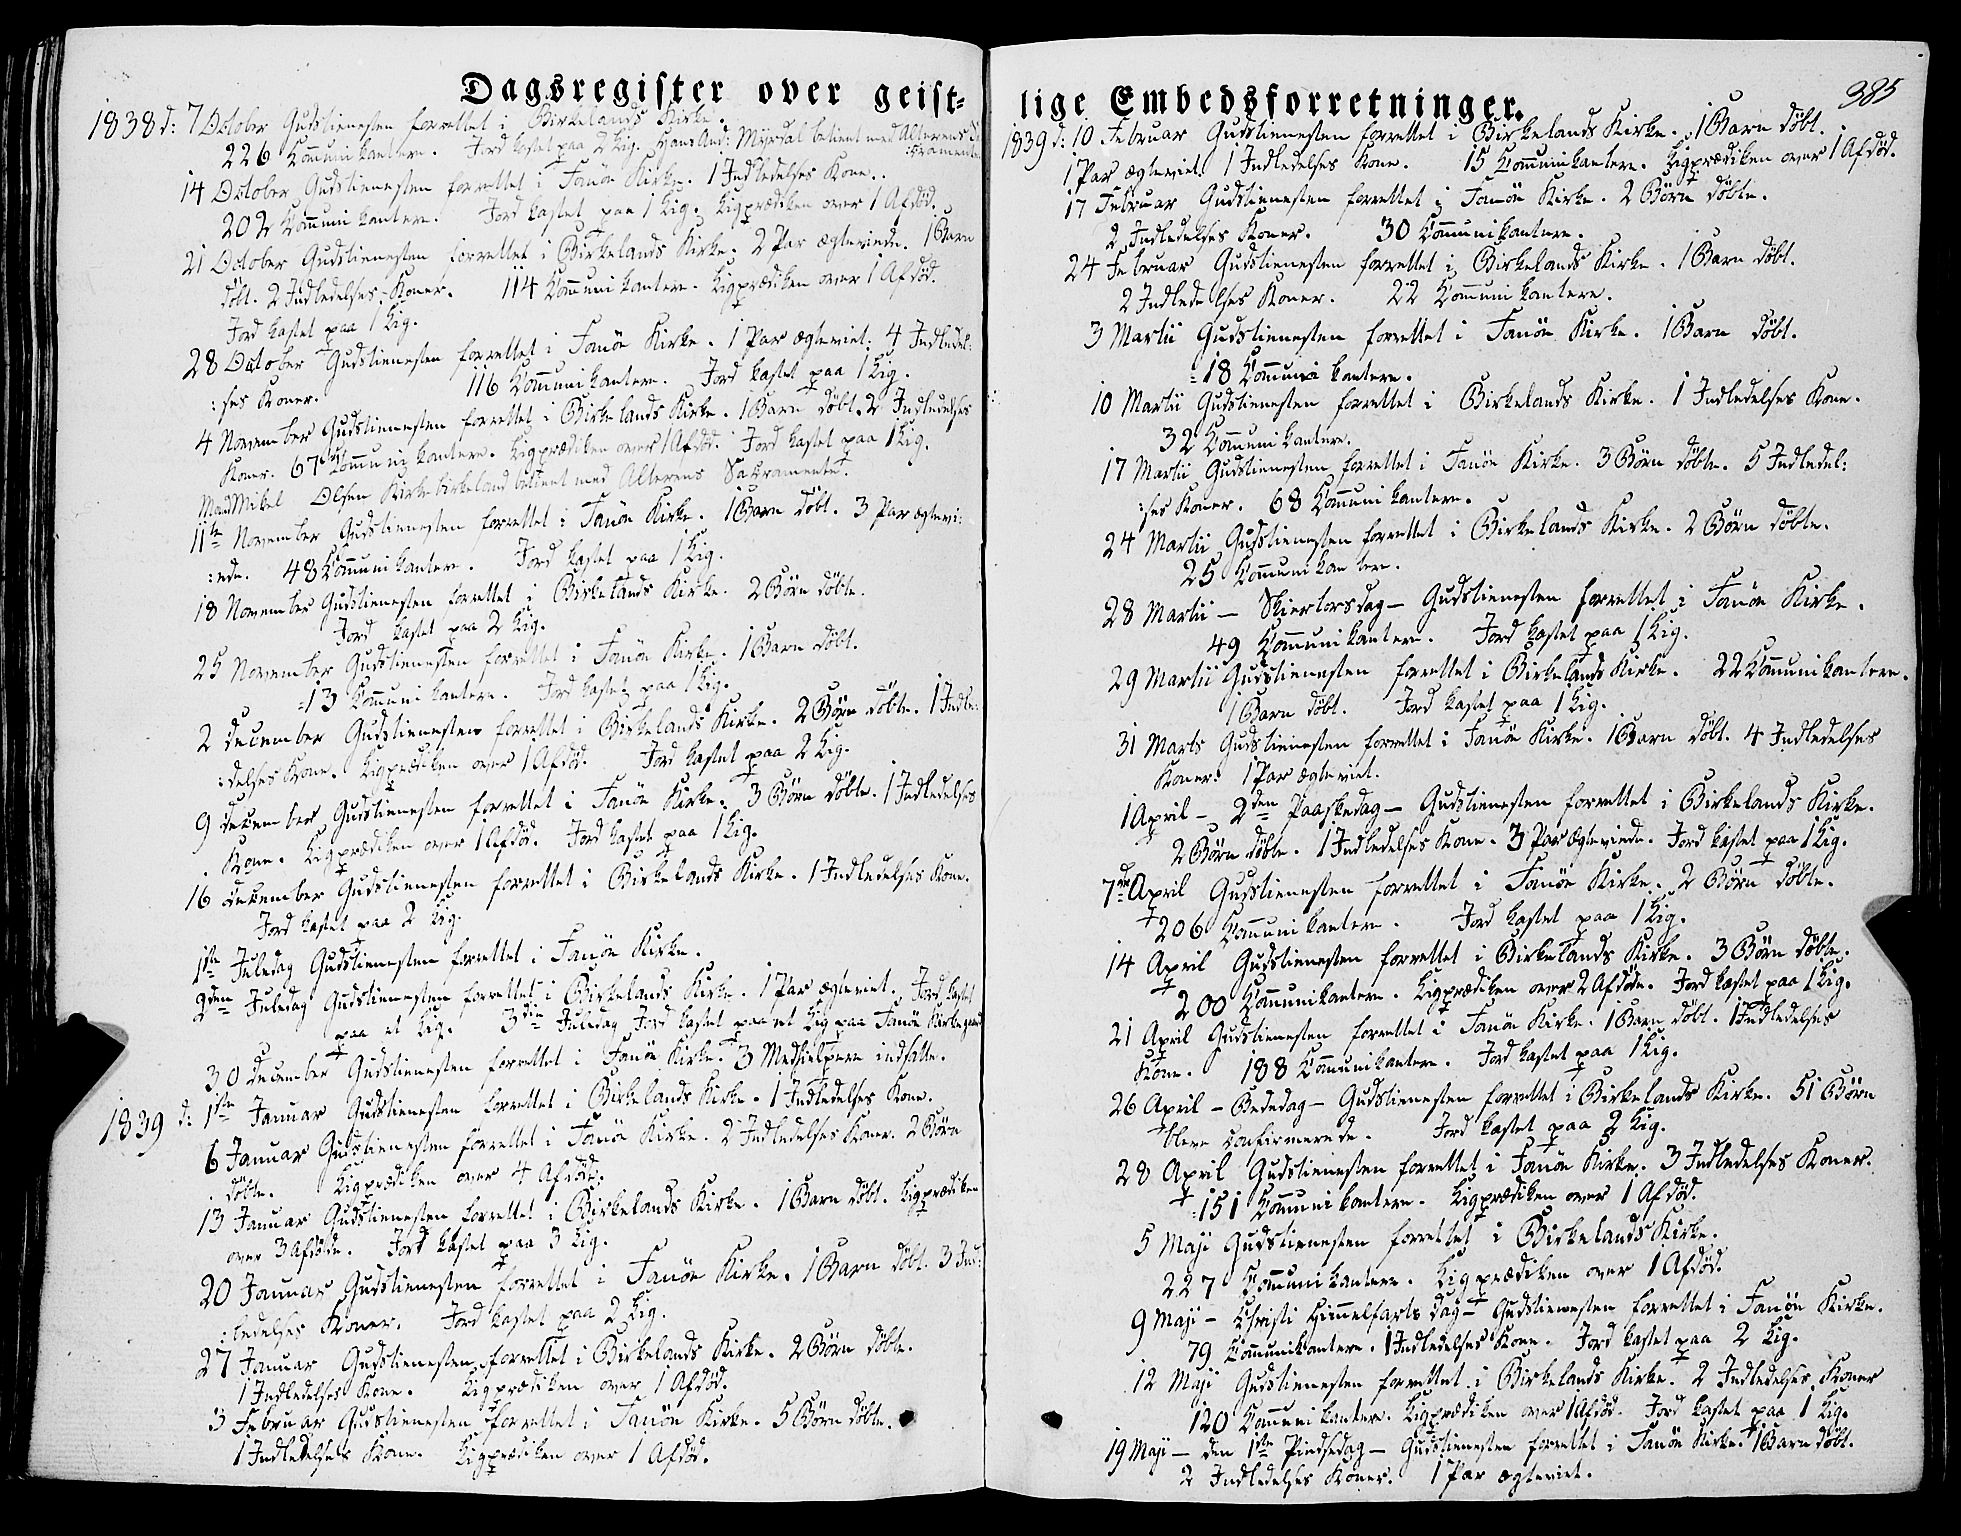 Dagsregister over geist-
1838 d: 7 October Gudstienesten forrettet i Birkelands Kirke.
226 Communikantere. Jord kastet paa 2 Lig. Hans And: Myrdal betient med Alterens
14 October Gudstienesten forrettet i Fanöe Kirke. 1 Indledelses Kone.
202 Communikantere. Jord kastet paa 1 Lig. Ligprædiken over 1 Afdöd.
21 October Gudstienesten forrettet i Birkelands Kirke. 2 Par ægteviede. 1 Barn
döbt. 2 Indledelses-Koner. 114 Communikantere. Ligprædiken over 1 Afdöd.
Jord kastet paa 1 Lig.
28 October Gudstienesten forrettet i Fanöe Kirke. 1 Par ægteviet. 4 Indledel:
:ses Koner. 116 Communikantere. Jord kastet paa 1 Lig.
4 November Gudstienesten forrettet i Birkelands Kirke. 1 Barn döbt. 2 Indledelses
Koner. 67 Communikantere. Ligprædiken over 1 Afdöd. Jord kastet paa 1 Lig.
Mikel Olsen Kirkebirkeland betient med Alterens Sacramente.
11te November Gudstienesten forrettet i Fanöe Kirke. 1 Barn döbt. 3 Par ægtevi:
:ede. 48 Communikantere. Jord kastet paa 1 Lig.
18 November Gudstienesten forrettet i Birkelands Kirke. 2 Börn döbte.
Jord kastet paa 2 Lig.
25 November Gudstienesten forrettet i Fanöe Kirke. 1 Barn döbt.
:13 Communikantere. Jord kastet paa 1 Lig.
2 december Gudstienesten forrettet i Birkelands Kirke. 2 Börn döbte. 1 Indle:
:delses Kone. Ligprædiken over 1 Afdöd. Jord kastet paa 2 Lig.
9 december Gudstienesten forrettet i Fanöe Kirke. 3 Börn döbte. 1 Indledelses
Kone. Ligprædiken over 1 Afdöd. Jord kastet paa 1 Lig.
16 december Gudstienesten forrettet i Birkelands Kirke. 1 Indledelses Kone.
Jord kastet paa 2 Lig.
1ste Juledag Gudstienesten forrettet i Fanöe Kirke.
2den Juledag Gudstienesten forrettet i Birkelands Kirke. 1 Par ægteviet. Jord kastet
paa et Lig. 3die Juledag Jord kastet paa et Lig paa Fanöe Kirkegaard
30 december Gudstienesten forrettet i Fanöe Kirke. 3 Medhielpere indsatte.
1839 d: 1ste Januar Gudstienesten forrettet i Birkelands Kirke. 1 Indledelses Kone.
6 Januar Gudstienesten forrettet i Fanöe Kirke. 2 Indledelses Koner. 2 Börn
döbte. Ligprædiken over 4 Afdöde.
13 Januar Gudstienesten forrettet i Birkelands Kirke. 1 Barn döbt. Ligprædiken
over 3 Afdöde. Jord kastet paa 3 Lig.
20 Januar Gudstienesten forrettet i Fanöe Kirke. 1 Barn döbt. 3 Ind:
:ledelses Koner. Jord kastet paa 2 Lig.
27 Januar Gudstienesten forrettet i Birkelands Kirke. 2 Börn döbte.
1 Indledelses Kone. Ligprædiken over 1 Afdöd.
3 Februar Gudstienesten forrettet i Fanöe Kirke. 5 Börn döbte.
1 Indledelses Kone. Ligprædiken over 1 Afdöd.
lige Embedsforretninger.
385
1839 d: 10 Februar Gudstienesten forrettet i Birkelands Kirke. 1 Barn döbt.
1 Par ægteviet. 1 Indledelses Kone. 15 Communikantere. Ligprædiken over 1 Afdöd.
17 Februar Gudstienesten forrettet i Fanöe Kirke. 2 Börn döbte.
2 Indledelses Koner. 30 Communikantere.
24 Februar Gudstienesten forrettet i Birkelands Kirke. 1 Barn döbt.
2 Indledelses Koner. 22 Communikantere.
3 Martii Gudstienesten forrettet i Fanöe Kirke. 1 Barn döbt.
:18 Communikantere.
10 Martii Gudstienesten forrettet i Birkelands Kirke. 1 Indledelses Kone.
32 Communikantere.
17 Martii Gudstienesten forrettet i Fanöe Kirke. 3 Börn döbte. 5 Indledel:
:ses Koner. 68 Communikantere.
24 Martii Gudstienesten forrettet i Birkelands Kirke. 2 Börn döbte.
25 Communikantere.
28 Martii - Skiertorsdag - Gudstienesten forrettet i Fanöe Kirke.
49 Communikantere. Jord kastet paa 1 Lig.
29 Martii Gudstienesten forrettet i Birkelands Kirke. 22 Communikantere.
1 Barn döbt. Jord kastet paa 1 Lig.
31 Marts Gudstienesten forrettet i Fanöe Kirke. 1 Barn döbt. 4 Indledelses
Koner. 1 Par ægteviet.
1 April - 2den Paaskedag - Gudstienesten forrettet i Birkelands Kirke.
2 Börn döbte. 1 Indledelses Kone. 3 Par ægteviede. Jord kastet paa 1 Lig.
7de April Gudstienesten forrettet i Fanöe Kirke. 2 Börn döbte.
206 Communikantere. Jord kastet paa 1 Lig.
14 April Gudstienesten forrettet i Birkelands Kirke. 3 Börn döbte.
200 Communikantere. Ligprædiken over 2 Afdöde. Jord kastet paa 1 Lig.
21 April Gudstienesten forrettet i Fanöe Kirke. 1 Barn döbt. 1 Indledelses
Kone. 188 Communikantere. Jord kastet paa 1 Lig.
26 April - Bededag - Gudstienesten forrettet i Birkelands Kirke. 51 Börn
bleve confirmerede. Jord kastet paa 2 Lig.
28 April Gudstienesten forrettet i Fanöe Kirke. 3 Indledelses Koner.
:151 Communikantere. Ligprædiken over 1 Afdöd.
5 Maji Gudstienesten forrettet i Birkelands Kirke.
227 Communikantere. Ligprædiken over 1 Afdöd.
9 Maji - Christi Himmelfarts dag - Gudstienesten forrettet i Fanöe Kirke.
79 Communikantere. 1 Indledelses Kone. Jord kastet paa 2 Lig.
12 Maji Gudstienesten forrettet i Birkelands Kirke. 2 Indledelses Koner
120 Communikantere. Ligprædiken over 1 Afdöd. Jord kastet paa 1 Lig.
19 Maji - den 1ste Pindsedag - Gudstienesten forrettet i Fanöe Kirke. 1 Barn döbt.
2 Indledelses Koner. 1 Par ægteviet.